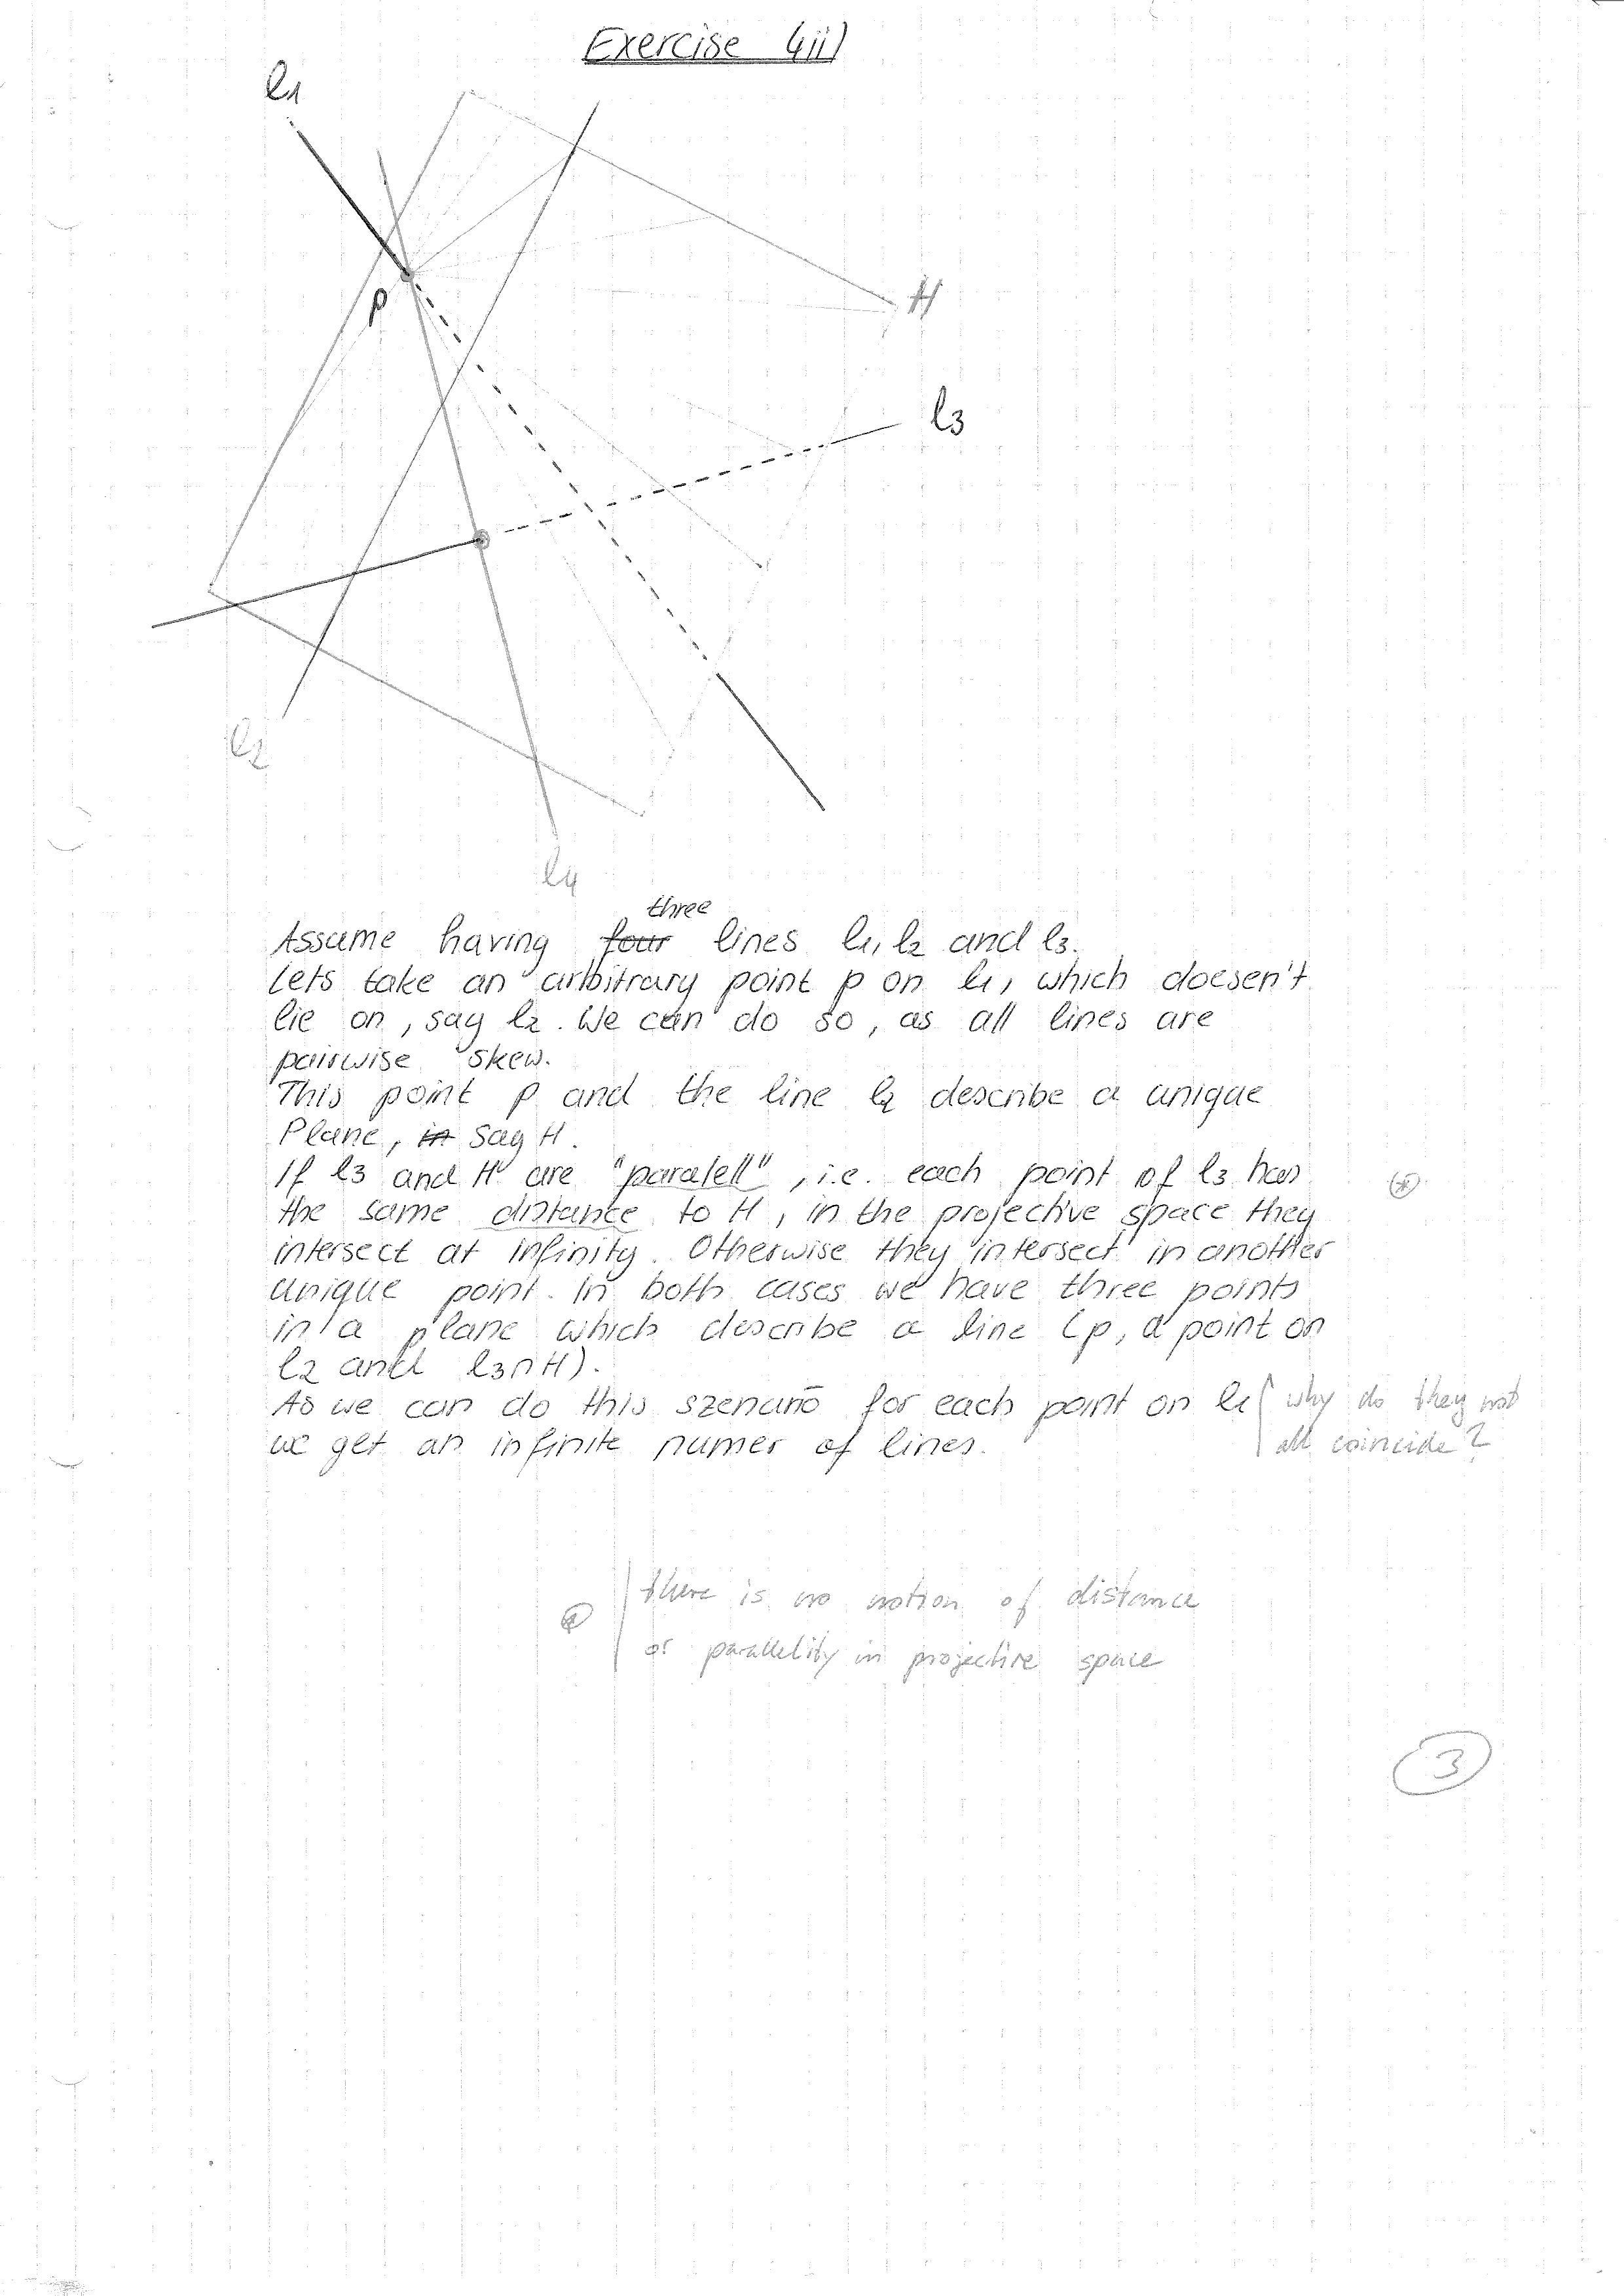 Exercise 4ii)
l1
p
H
l3
l2
l4
three
Assume having four lines l1, l2 and l3.
Lets take an arbitrary point p on l1, which doesen't
lie on, say l2. We can do so, as all lines are
pairwise skew.
This point p and the line l2 describe a unique
Plane, in say H.
If l3 and H are "paralell", i.e. each point of l3 has
the same distance to H, in the projective space they
intersect at infinity. Otherwise they intersect in another
unique point. In both cases we have three points
in a plane which describe a line (p, a point on
l2 and l3∩H).
As we can do this szenario for each point on l1 why do they not
we get an infinite numer of lines. all coincide?
there is no notion of distance
or parallelity in projective space
3